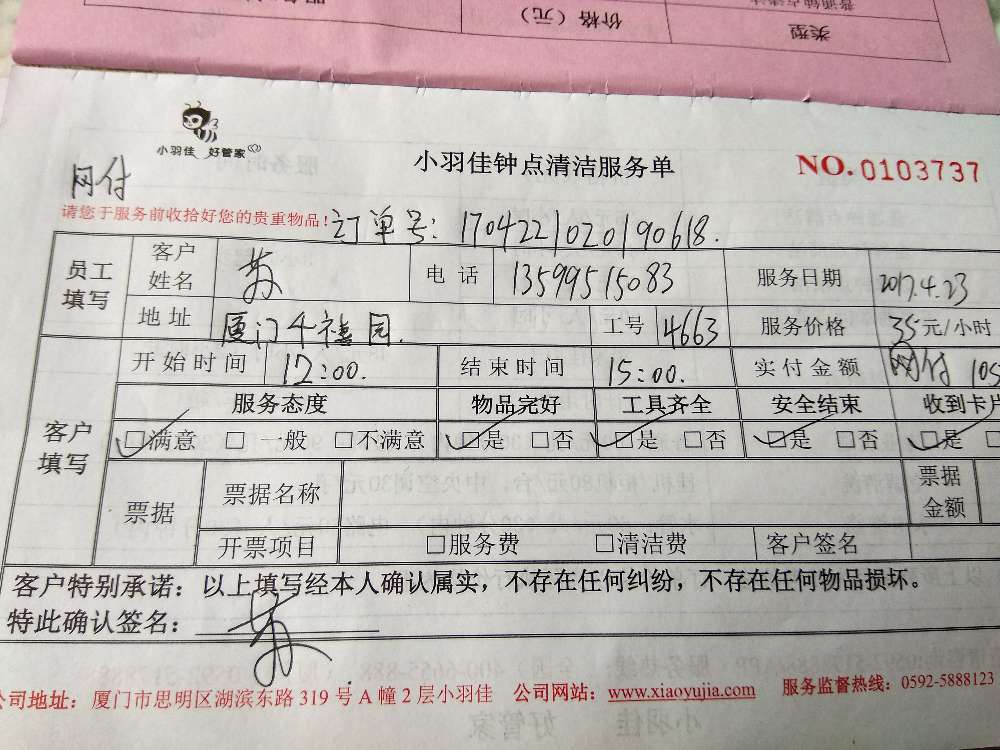 价格（元）
类型
小羽佳 好管家
网付
小羽佳钟点清洁服务单
NO.0103737
请您于服务前收拾好您的贵重物品！
订单号：170422102019 0618.
员工填写 客户姓名 苏 电话 13599515083 服务日期 2017.4.23
地址 厦门千禧园. 工号 4663 服务价格 35元/小时
开始时间 12:00. 结束时间 15:00. 实付金额 网付 105
客户填写 服务态度 物品完好 工具齐全 安全结束 收到卡片
□满意 □一般 □不满意 □是 □否 □是 □否 □是 □否 □是 □
票据 票据名称 票据金额
开票项目 □服务费 □清洁费 客户签名
客户特别承诺：以上填写经本人确认属实，不存在任何纠纷，不存在任何物品损坏。
特此确认签名： 苏
公司地址：厦门市思明区湖滨东路 319 号 A 幢 2 层小羽佳 公司网站：www.xiaoyujia.com 服务监督热线：0592-5888123